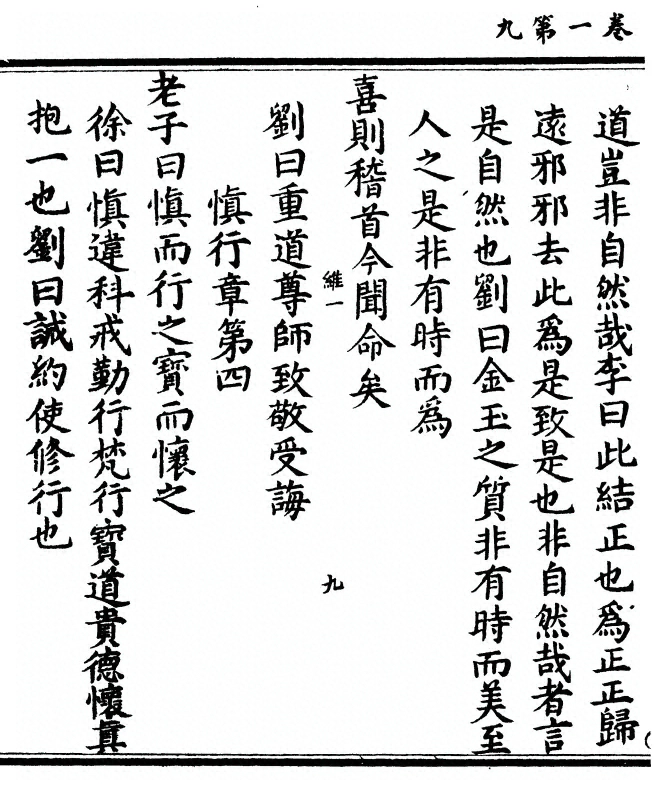 卷一第九
道豈非自然哉李曰此結正也爲正正歸
遠邪邪去此爲是致是也非自然哉者言
是自然也劉曰金玉之質非有時而美至
人之是非有時而爲
喜則稽首今聞命矣
維一
九
劉曰重道尊師致敬受誨
愼行章第四
老子曰愼而行之寶而懷之
徐曰愼違科戒勤行梵行寶道貴德懷眞
抱一也劉曰誡約使修行也